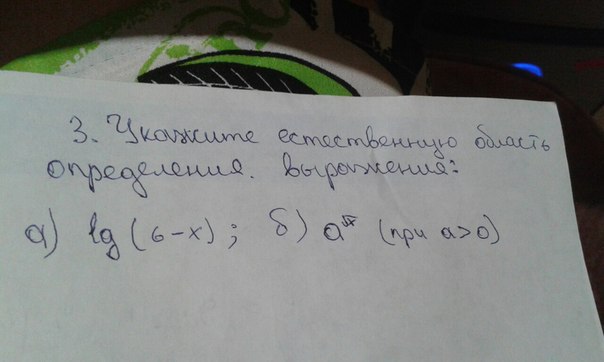 3. Укажите естественную область
определения. выражения:
а) lg (6-x); б) a^√x (при a>0)